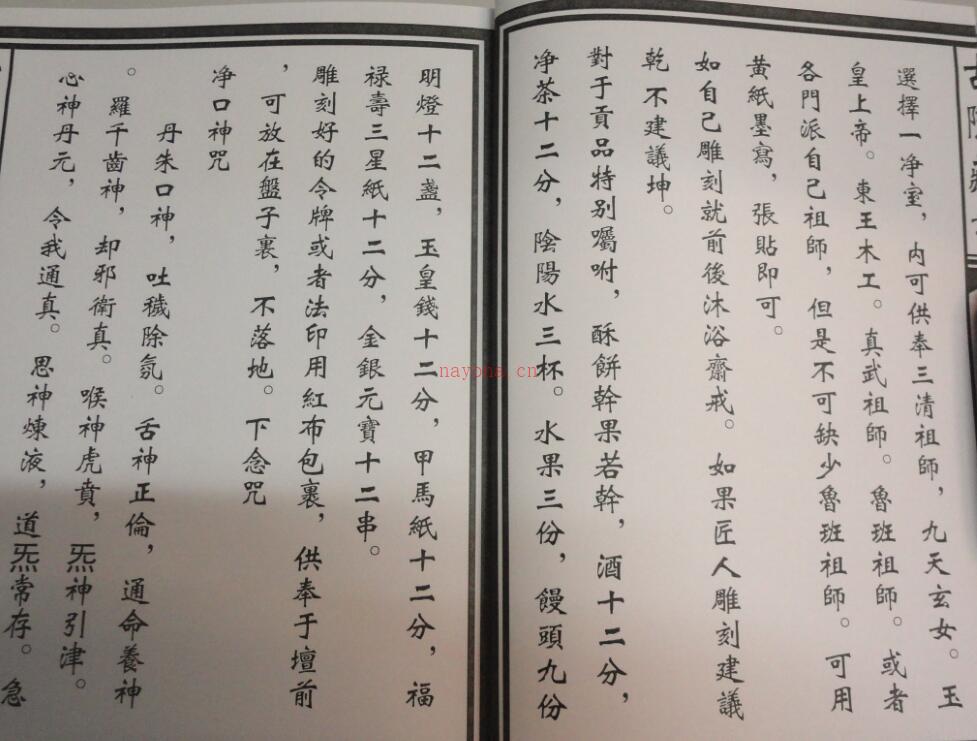 選擇一净室，内可供奉三清祖師，九天玄女。玉
皇上帝。東王木工。真武祖師。魯班祖師。或者
各門派自己祖師，但是不可缺少魯班祖師。可用
黄紙墨寫，張貼即可。
如自己雕刻就前後沐浴齋戒。如果匠人雕刻建議
乾不建議坤。
對于貢品特别囑咐，酥餅幹果若幹，酒十二分，
净茶十二分，陰陽水三杯。水果三份，饅頭九份
明燈十二盞，玉皇錢十二分，甲馬紙十二分，福
禄壽三星紙十二分，金銀元寶十二串。
雕刻好的令牌或者法印用紅布包裹，供奉于壇前
，可放在盤子裏，不落地。下念咒
净口神咒
丹朱口神，吐穢除氛。舌神正倫，通命養神
。羅千齒神，却邪衛真。喉神虎賁，炁神引津。
心神丹元，令我通真。思神煉液，道炁常存。急
nayona.cn